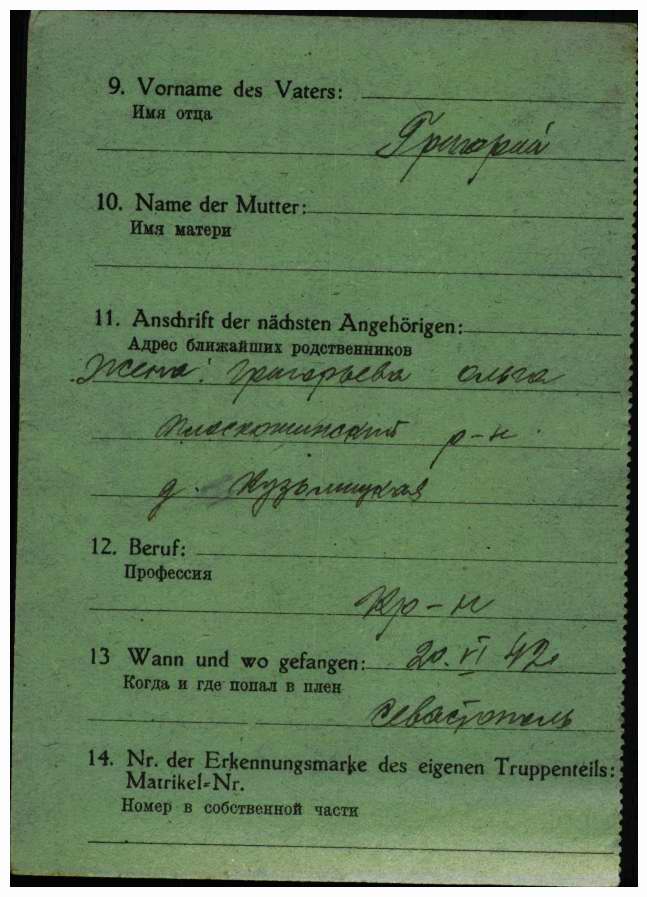 9. Vorname des Vaters:
Имя отца
Григорий
10. Name der Mutter:
Имя матери
11. Anschrift der nächsten Angehörigen:
Адрес ближайших родственников
Жена: Григорьева Ольга
Плоскошинский р-н
д. Кузьмицкая
12. Beruf:
Профессия
Кр-н
13 Wann und wo gefangen: 20. VI 42г
Когда и где попал в плен
Севастополь
14. Nr. der Erkennungsmarke des eigenen Truppenteils:
Matrikel=Nr.
Номер в собственной части